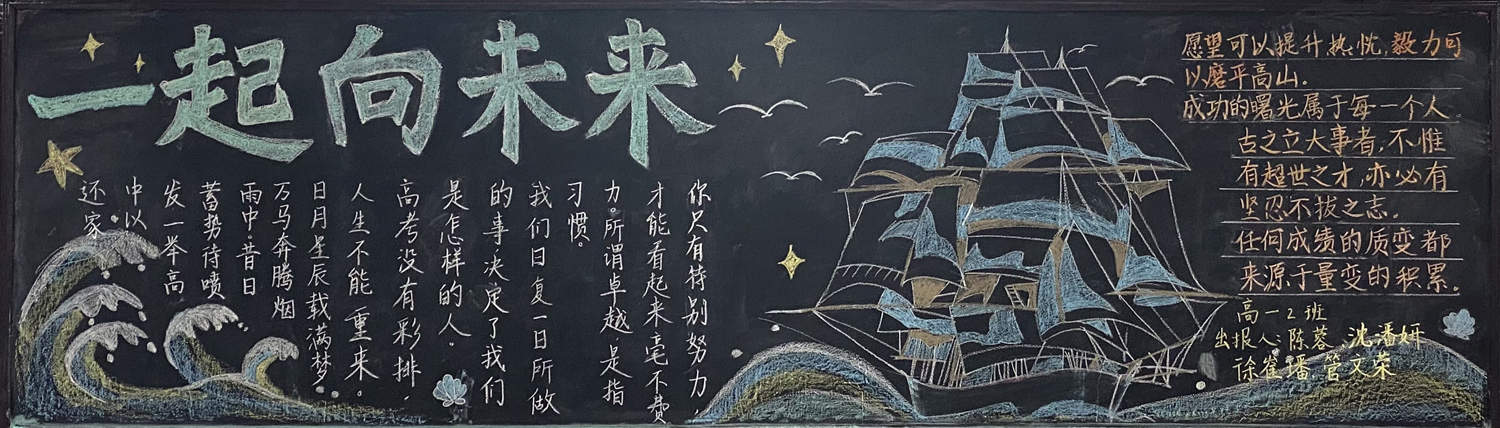 一起向未来
你只有特别努力，
才能看起来毫不费
力。所谓卓越，是指
习惯。
我们日复一日所做
的事决定了我们
是怎样的人。
高考没有彩排，
人生不能重来。
日月星辰载满梦，
万马奔腾烟
雨中。昔日
蓄势待喷
发一举高
中以
还家
愿望可以提升热忱，毅力可
以磨平高山。
成功的曙光属于每一个人。
古之立大事者，不惟
有超世之才，亦必有
坚忍不拔之志。
任何成绩的质变都
来源于量变的积累。
高一2班
出报人：陈蓉、沈潘妍
徐崔璠 管文荣